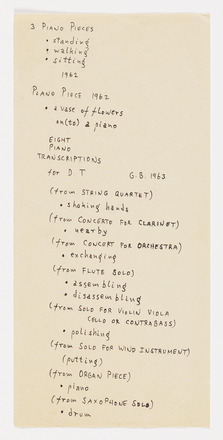 3 PIANO PIECES
• standing
• walking
• sitting
1962
PIANO PIECE 1962
• a vase of flowers
on(to) a piano
EIGHT
PIANO
TRANSCRIPTIONS
for D T G.B. 1963
(from STRING QUARTET)
• shaking hands
(from CONCERTO FOR CLARINET)
• nearby
(from CONCERT FOR ORCHESTRA)
• exchanging
(from FLUTE SOLO)
• assembling
• disassembling
(from SOLO FOR VIOLIN VIOLA
CELLO OR CONTRABASS)
• polishing
(from SOLO FOR WIND INSTRUMENT)
(putting)
(from ORGAN PIECE)
• piano
(from SAXOPHONE SOLO)
• drum